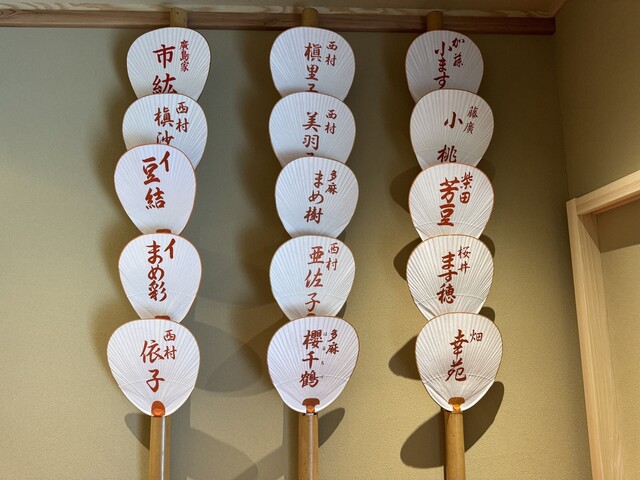 廣島家
市紘
西村
槇沙
イ
豆結
イ
まめ彩
西村
依子
西村
槇里子
西村
美羽子
多麻
まめ樹
西村
亜佐子
多麻
櫻千鶴
加藤
小ます
藤廣
小桃
柴田
芳豆
桜井
ます穂
畑
幸苑